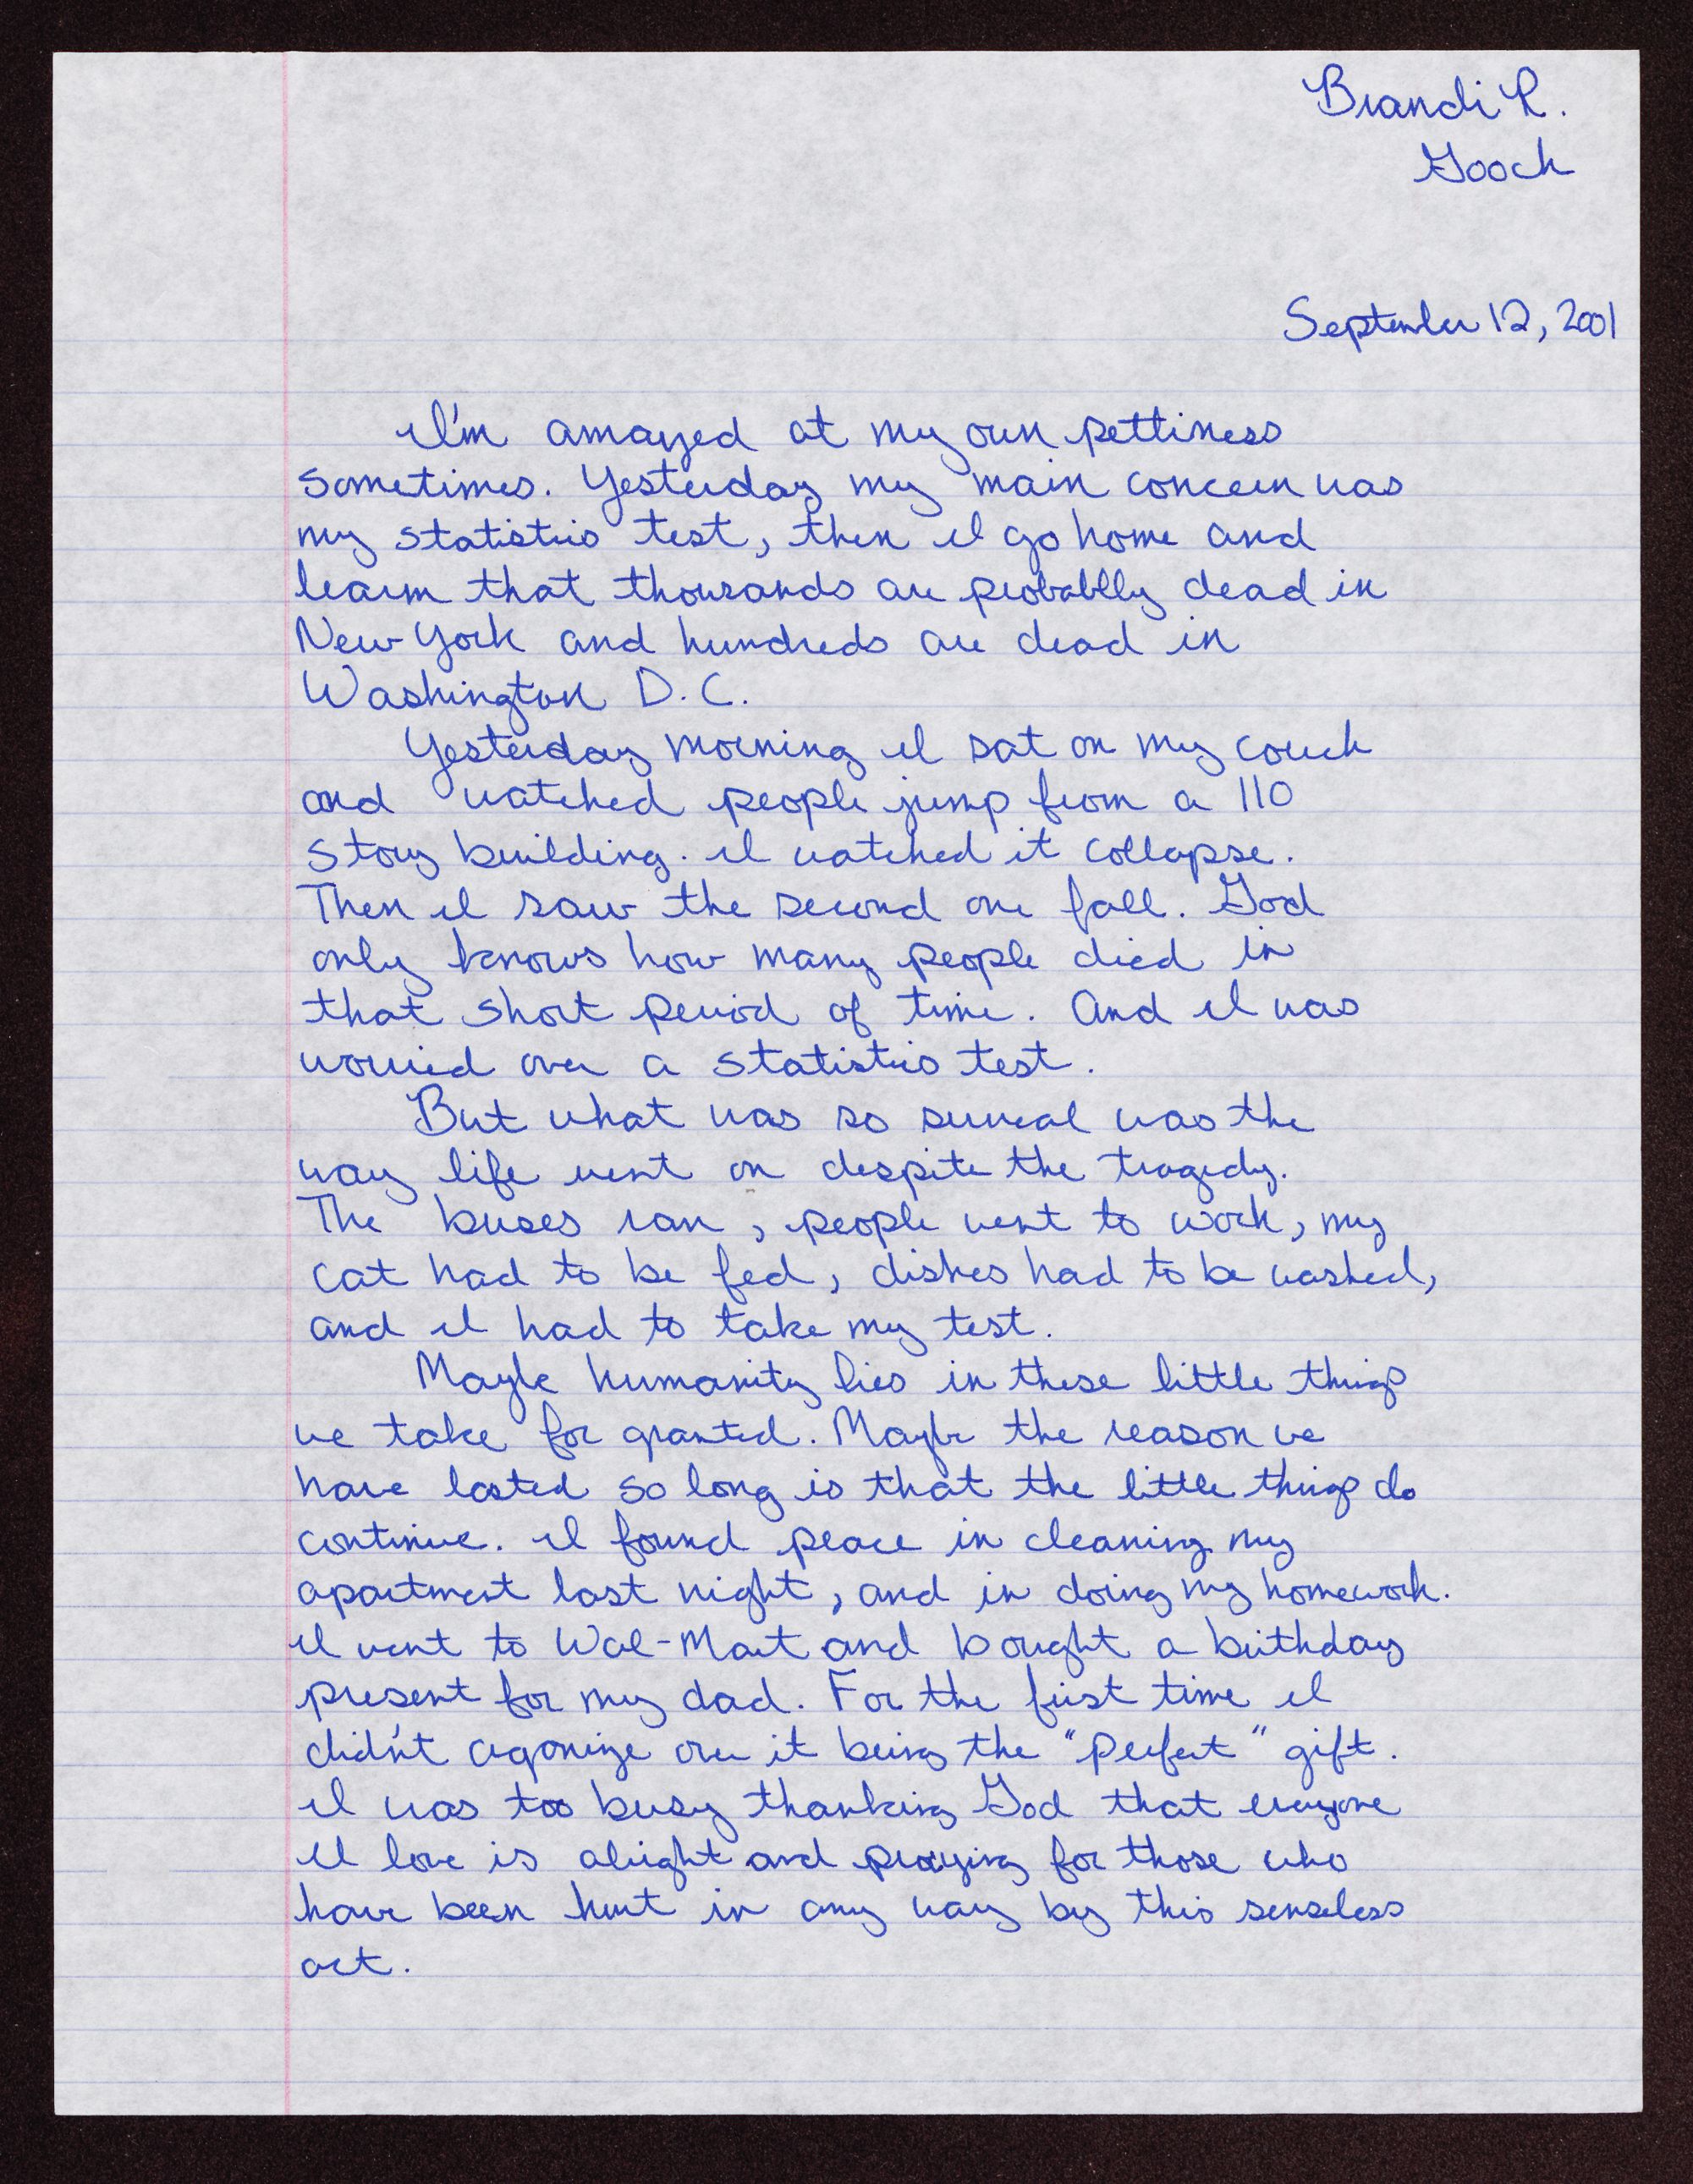 Brandi R.
Gooch
September 12, 2001
I'm amazed at my own pettiness
sometimes. Yesterday my main concern was
my statistics test, then I go home and
learn that thousands are probablly dead in
New York and hundreds are dead in
Washington D.C.
Yesterday morning I sat on my couch
and watched people jump from a 110
story building. I watched it collapse.
Then I saw the second one fall. God
only knows how many people died in
that short period of time. And I was
worried over a statistics test.
But what was so surreal was the
way life went on despite the tragedy.
The buses ran, people went to work, my
cat had to be fed, dishes had to be washed,
and I had to take my test.
Maybe humanity lies in these little things
we take for granted. Maybe the reason we
have lasted so long is that the little things do
continue. I found peace in cleaning my
apartment last night, and in doing my homework.
I went to Wal-Mart and bought a birthday
present for my dad. For the first time I
didn't agonize over it being the "perfect" gift.
I was too busy thanking God that everyone
I love is alright and praying for those who
have been hurt in any way by this senseless
act.